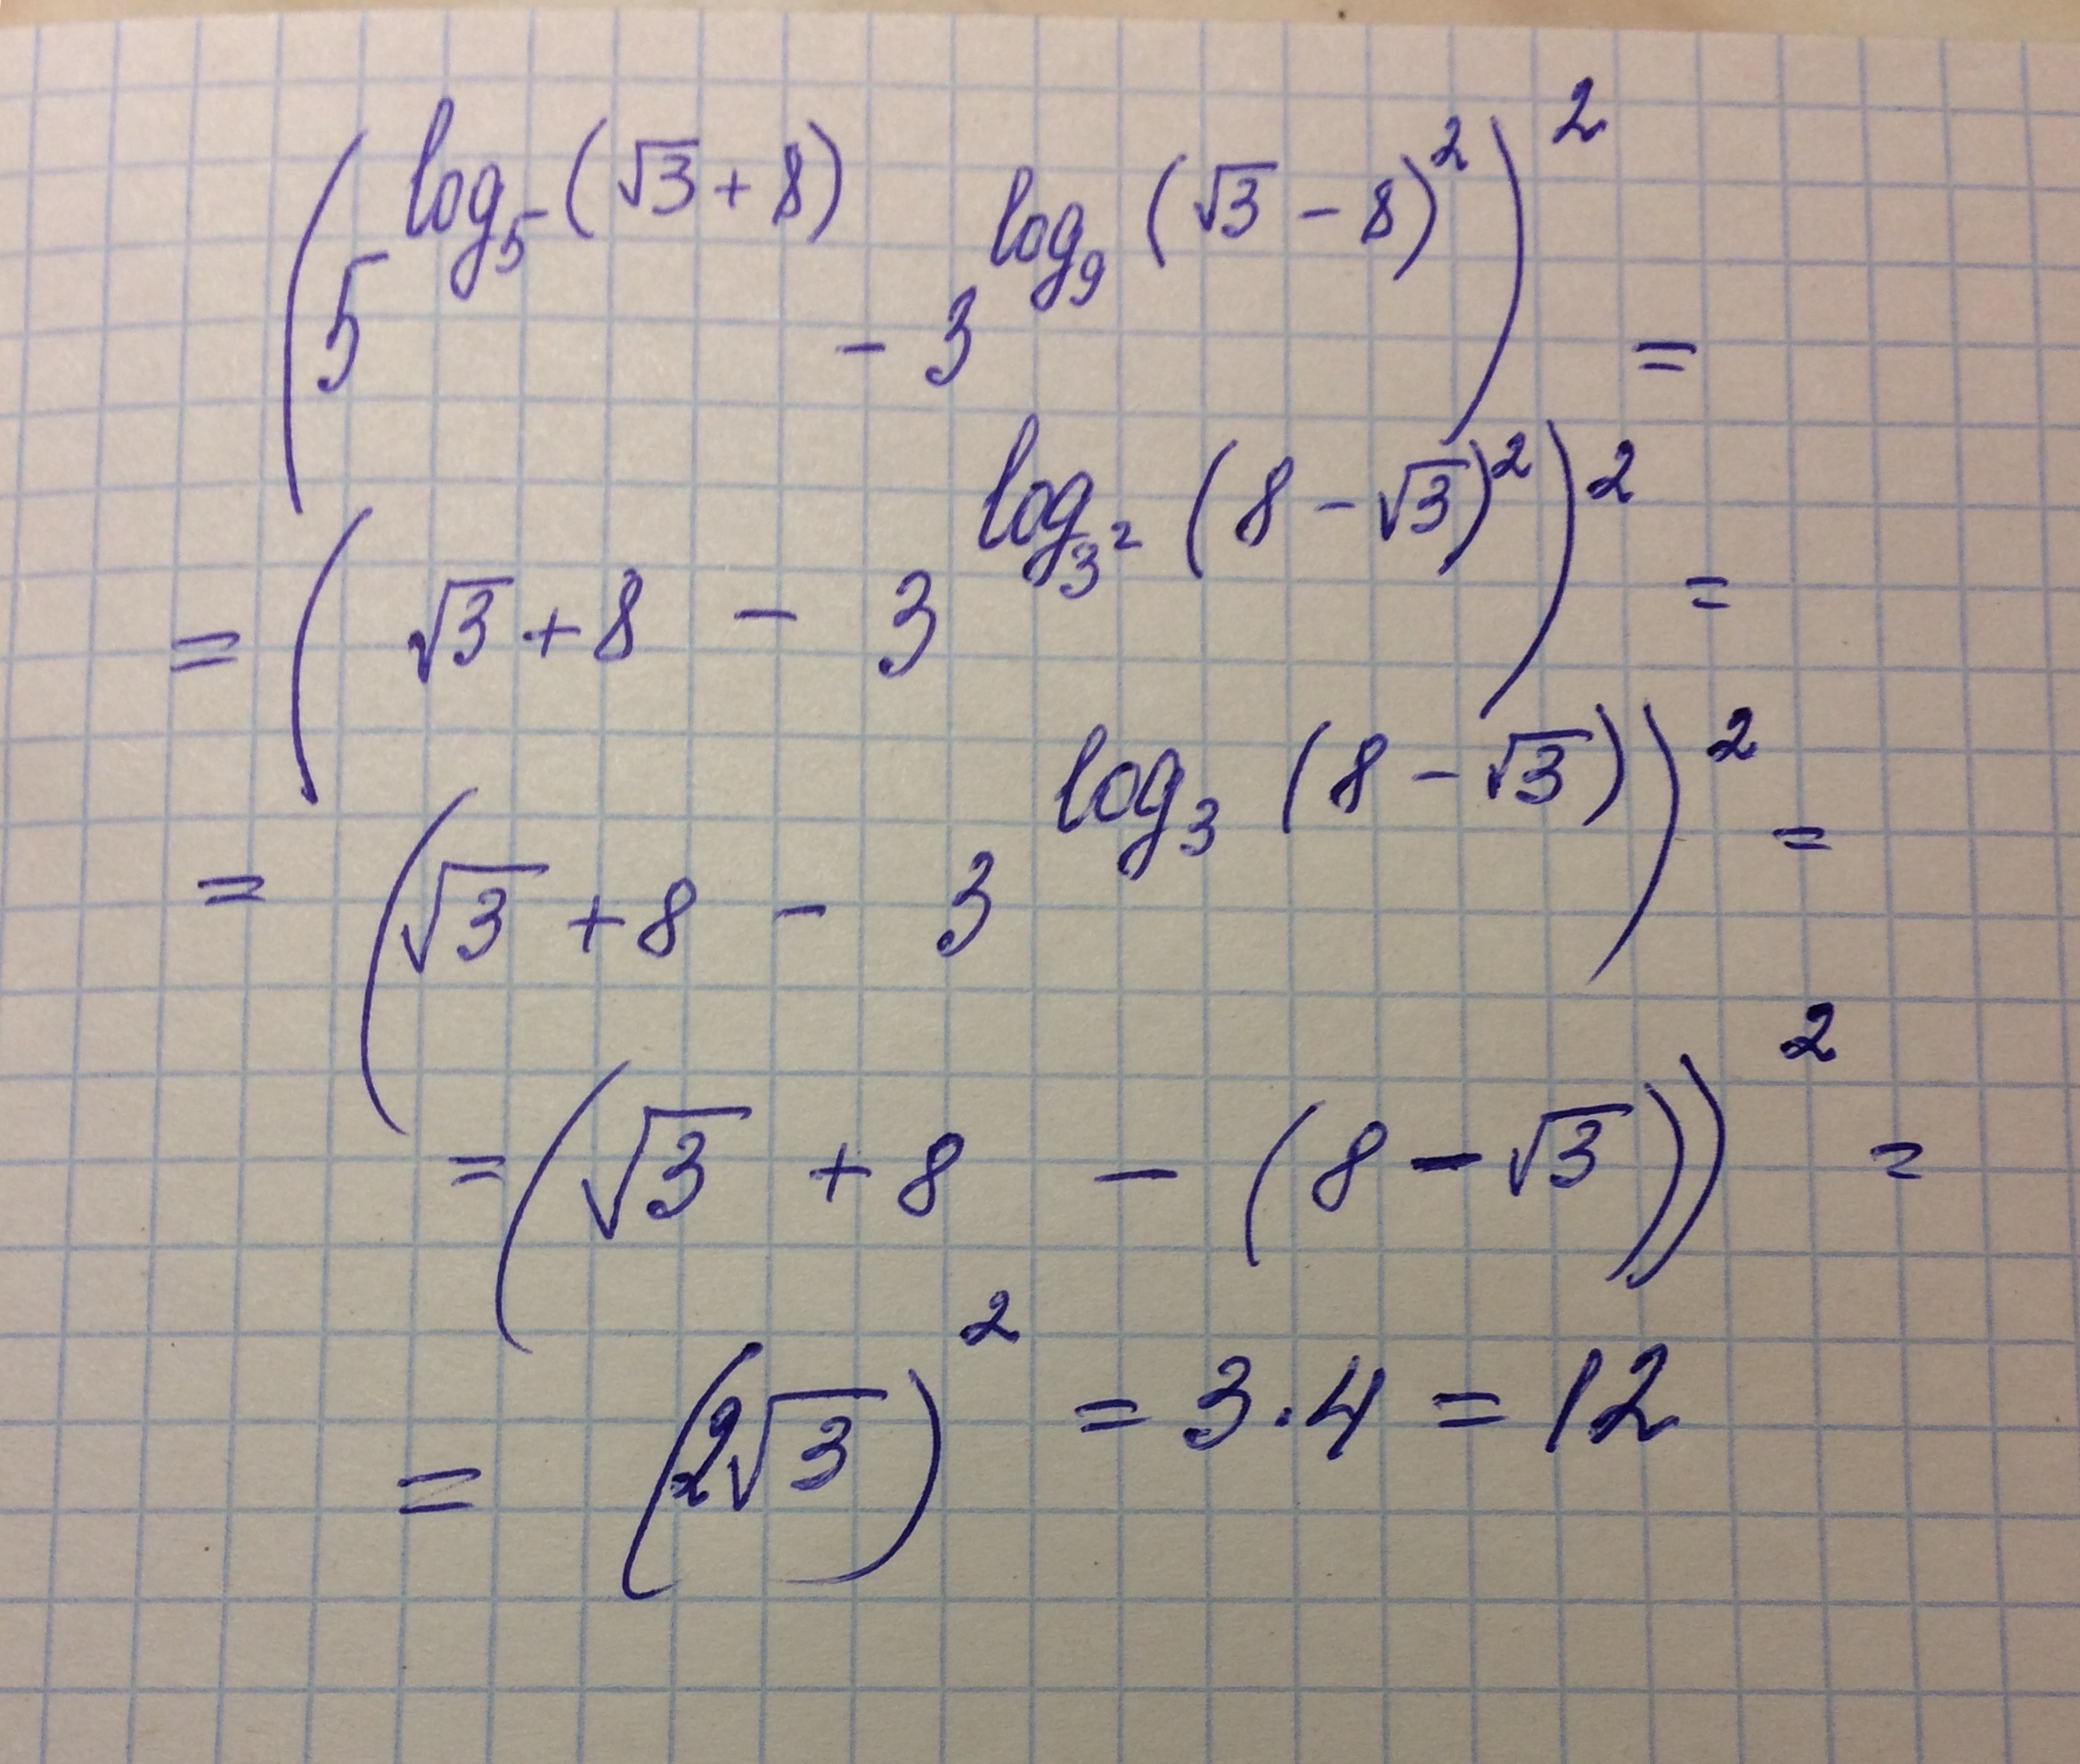 (5^{log_5(√3+8)} - 3^{log_9(√3-8)^2})^2 =
= (√3+8 - 3^{log_{3^2}(8-√3)^2})^2 =
= (√3+8 - 3^{log_3(8-√3)})^2 =
= (√3+8 - (8-√3))^2 =
= (2√3)^2 = 3·4 = 12